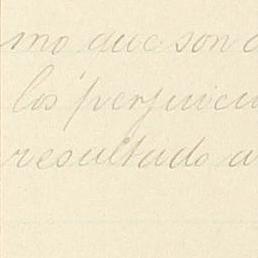 mo que son
los perjuici
resultado a